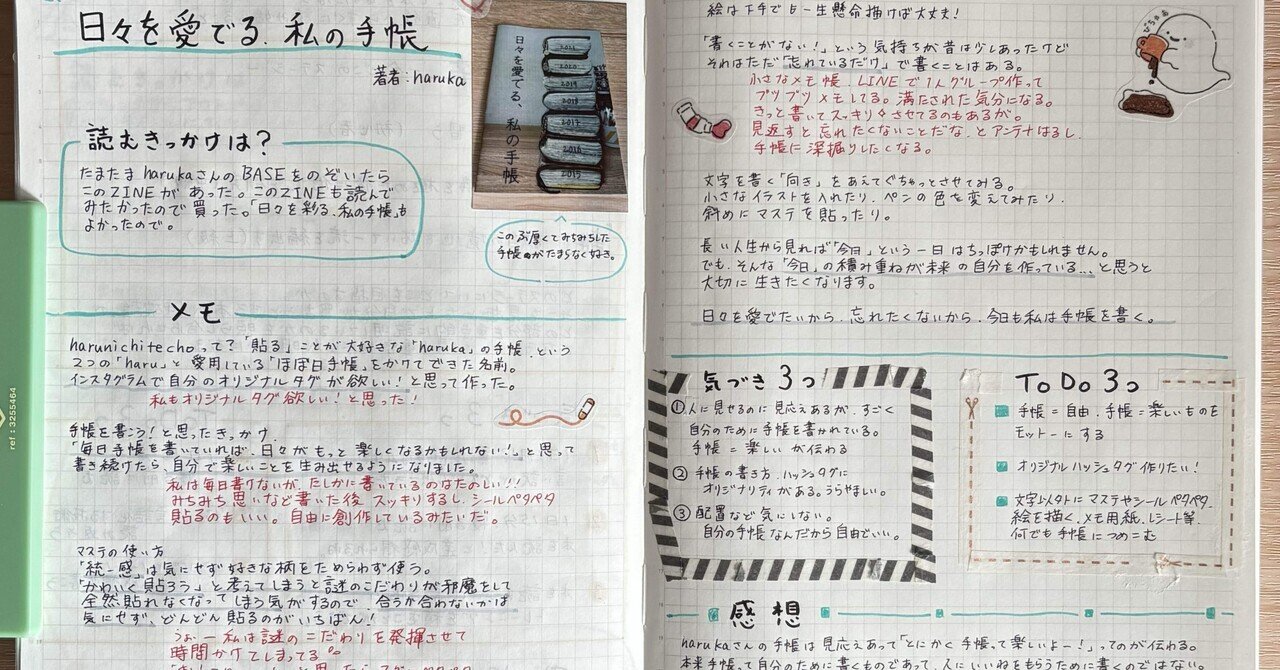 日々を愛でる、私の手帳
著者:haruka
日々を愛でる、私の手帳
2021
2020
2019
2018
2017
2016
2015
読むきっかけは?
たまたまharukaさんのBASEをのぞいたら
このZINEがあった。このZINEも読んで
みたかったので買った。「日々を彩る、私の手帳」も
よかったので。
このぶ厚くてみちみちした
手帳がたまらなく好き。
メモ
harunichitechoって?「貼る」ことが大好きな"haruka"の手帳、という
2つの「haru」と愛用している「ほぼ日手帳」をかけてできた名前。
インスタグラムで自分のオリジナルタグが欲しい!と思って作った。
私もオリジナルタグ欲しい!と思った!
手帳を書こう!と思ったきっかけ
「毎日手帳を書いていれば、日々がもっと楽しくなるかもしれない!」と思って
書き続けたら、自分で楽しいことを生み出せるようになりました。
私は毎日書けないが、たしかに書いているのはたのしい!!
みちみち思いなど書いた後、スッキリするし、シールペタペタ
貼るのもいい。自由に創作しているみたいだ。
マステの使い方
「統一感」は気にせず好きな柄をためらわず使う。
「かわいく貼ろう」と考えてしまうと謎のこだわりが邪魔をして
全然貼れなくなってしまう気がするので、合うか合わないかは
気にせず、どんどん貼るのがいちばん!
うぉー私は謎のこだわりを発揮させて
時間かけてしまってる
ref:3255464
絵は下手でも一生懸命描けば大丈夫!
「書くことがない!」という気持ちが昔は少しあったけど
それはただ「忘れているだけ」で書くことはある。
小さなメモ帳、LINEで1人グループ作って
ブツブツメモしてる。満たされた気分になる。
きっと書いてスッキリさせてるのもあるが。
見返すと忘れたくないことだな、とアンテナはるし、
手帳に深掘りしたくなる。
文字を書く「向き」をあえてぐちゃっとさせてみる。
小さなイラストを入れたり、ペンの色を変えてみたり、
斜めにマステを貼ったり。
長い人生から見れば「今日」という一日はちっぽけかもしれません。
でも、そんな「今日」の積み重ねが未来の自分を作っている...と思うと
大切に生きたくなります。
日々を愛でたいから、忘れたくないから、今日も私は手帳を書く。
気づき3つ
①人に見せるのに見応えあるが、すごく
自分のために手帳を書かれている。
手帳=楽しいが伝わる
②手帳の書き方、ハッシュタグに
オリジナリティがある。うらやましい。
③配置など気にしない。
自分の手帳なんだから自由でいい。
ToDo3つ
手帳=自由、手帳=楽しいものを
モットーにする
オリジナルハッシュタグ作りたい!
文字以外にマステやシールペタペタ、
絵を描く、メモ用紙、レシート等、
何でも手帳につめこむ
感想
harukaさんの手帳は見応えあって「とにかく手帳って楽しいよー!」ってのが伝わる。
本来手帳って自分のために書くものであって、人にいいねをもらうために書くのではない。